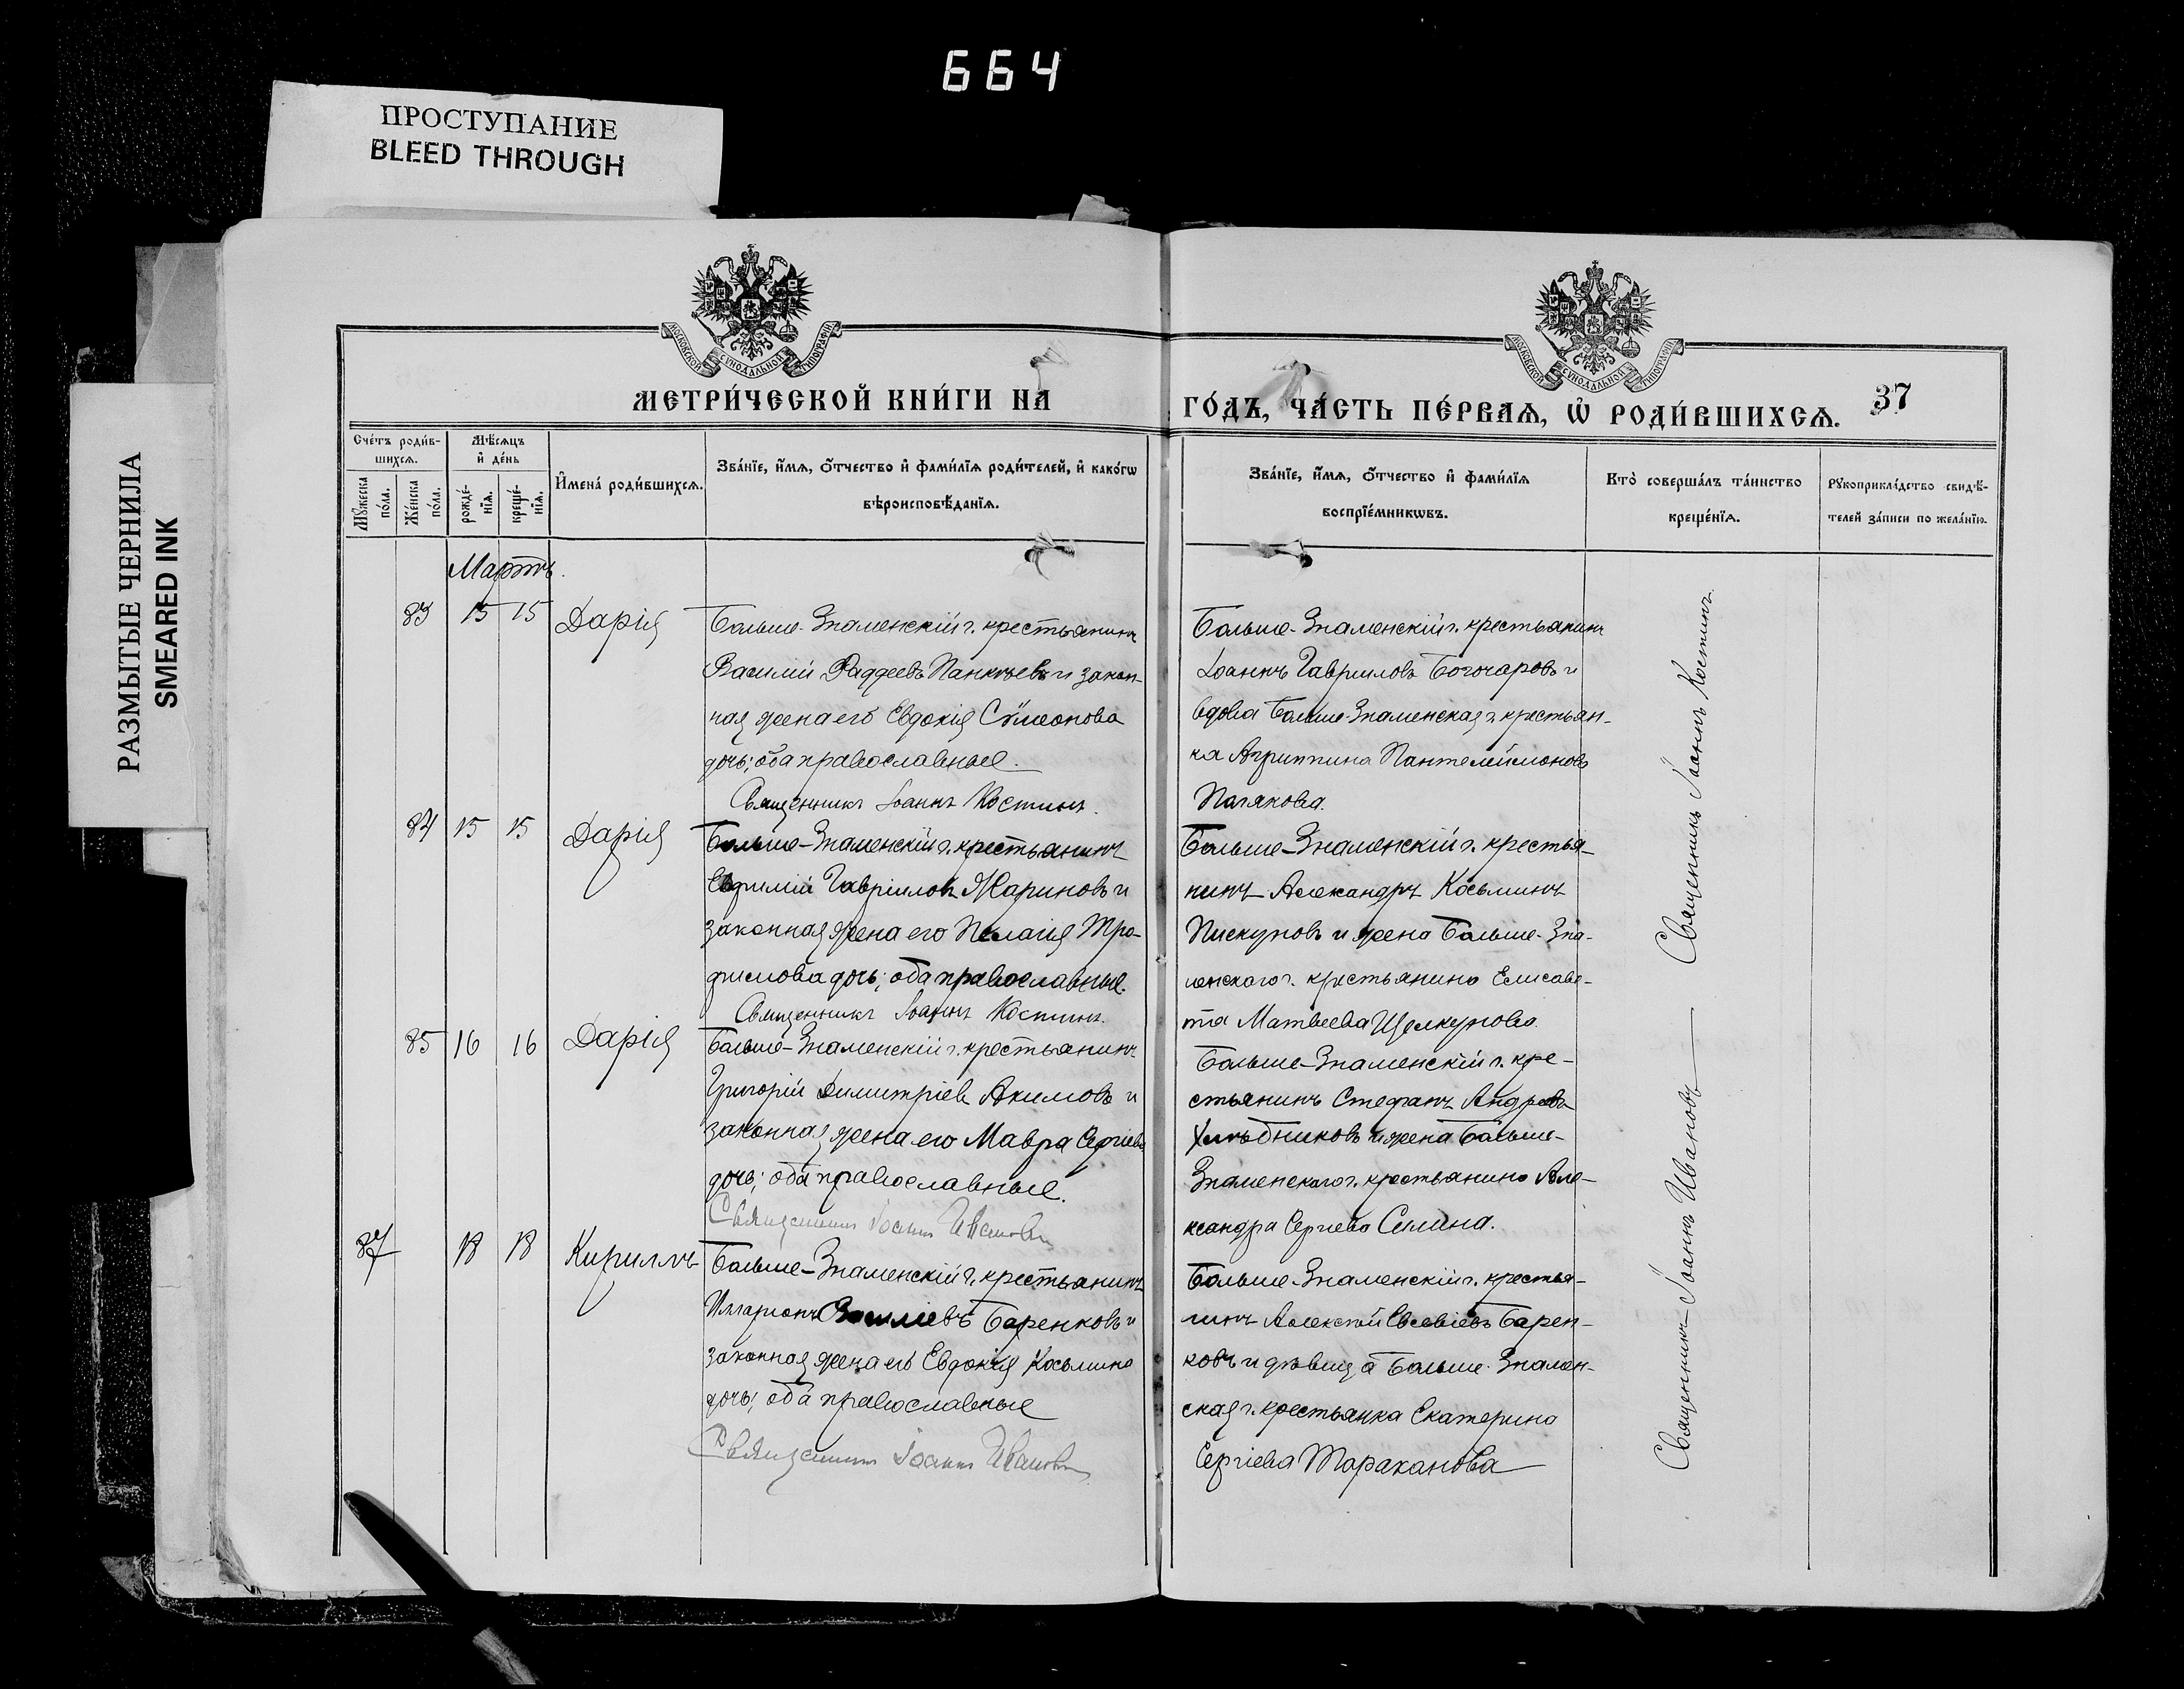 664
ПРОСТУПАНИЕ
BLEED THROUGH
РАЗМЫТЫЕ ЧЕРНИЛА
SMEARED INK
МОСКОВСКОЙ СѴНОДАЛЬНОЙ ТИПОГРАФІИ
МОСКОВСКОЙ СѴНОДАЛЬНОЙ ТИПОГРАФІИ
МЕТРИ́ЧЕСКОЙ КНИ́ГИ НА
ГО́ДЪ, ЧА́СТЬ ПЕ́РВАѦ, Ѡ҆ РОДИ́ВШИХСѦ.
37
Сче́тъ роди́в-
шихсѧ.
Мꙋ́жеска по́ла.
Же́нска по́ла.
Мѣ́сѧцъ
и҆ де́нь
рожде́-
нїѧ.
креще́-
нїѧ.
И҆мена̀ роди́вшихсѧ.
Зва́нїе, и҆́мѧ, ѻ҆́тчество и҆ фами́лїѧ роди́телей, и҆ како́гѡ
вѣроисповѣ́данїѧ.
Зва́нїе, и҆́мѧ, ѻ҆́тчество и҆ фами́лїѧ
воспрїе́мникѡвъ.
Кто̀ соверша́лъ та́инство
креще́нїѧ.
Рꙋкоприкла́дство свидѣ́-
телей за́писи по жела́нїю.
Мартъ.
83 15 15 Дарія
Больше-Знаменскій г. крестьянинъ
Василій Фаддеевъ и закон-
ная жена его Евдокія Сѵмеонова
дочь; оба православные.
Священникъ Іоаннъ Костинъ.
Больше-Знаменскій г. крестьянинъ
Іоаннъ Гавриловъ Богочаровъ и
вдова Больше-Знаменская г. крестьян-
ка Агриппина Пантелеимонова
84 15 15 Дарія
Больше-Знаменскій г. крестьянинъ
Евфимій Гавріиловъ Жариновъ и
законная жена его Пелагія Тро-
фимова дочь; оба православные.
Священникъ Іоаннъ Костинъ.
Больше-Знаменскій г. крестья-
нинъ Александръ Косьминъ
Пискуновъ и жена Больше-Зна-
менского г. крестьянина Елисаве-
та Матвеева Щелкунова.
85 16 16 Дарія
Больше-Знаменскій г. крестьянинъ
Григорій Димитріевъ Акимовъ и
законная жена его Мавра Сергіева
дочь; оба православные.
Священникъ Іоаннъ Ивановъ
Больше-Знаменскій г. кре-
стьянинъ Стефанъ Андреевъ
Хлѣбниковъ и жена Больше-
Знаменского г. крестьянина Але-
ксандра Сергіева Селина.
87 18 18 Кириллъ
Больше-Знаменскій г. крестьянинъ
Илларіонъ Баренковъ и
законная жена его Евдокія Косьмина
дочь; оба православные
Священникъ Іоаннъ Ивановъ
Больше-Знаменскій г. крестья-
нинъ Алексѣй Евсевіевъ Барен-
ковъ и дѣвица Больше-Знамен-
ская г. крестьянка Екатерина
Сергіева Тараканова
Священникъ Іоаннъ Костинъ.
Священникъ Іоаннъ Ивановъ